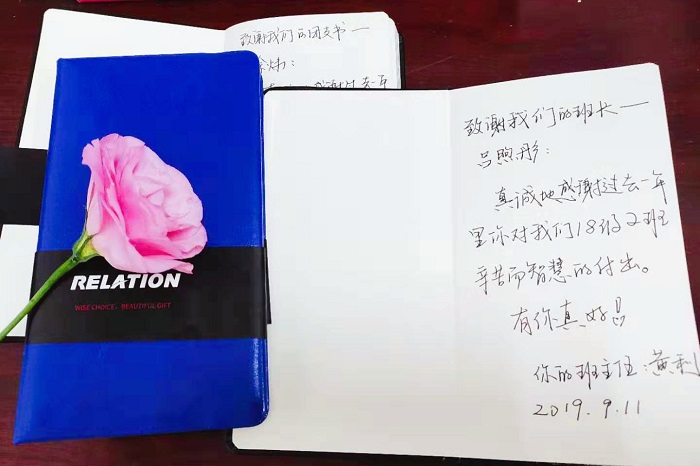 致谢我们的团支书—
致谢我们的班长—
吕煦彤：
真诚地感谢过去一年
里你对我们18级2班
辛苦而智慧的付出。
有你真好
你的班主任：黄利
2019.9.11
RELATION
WISE CHOICE, BEAUTIFUL GIFT